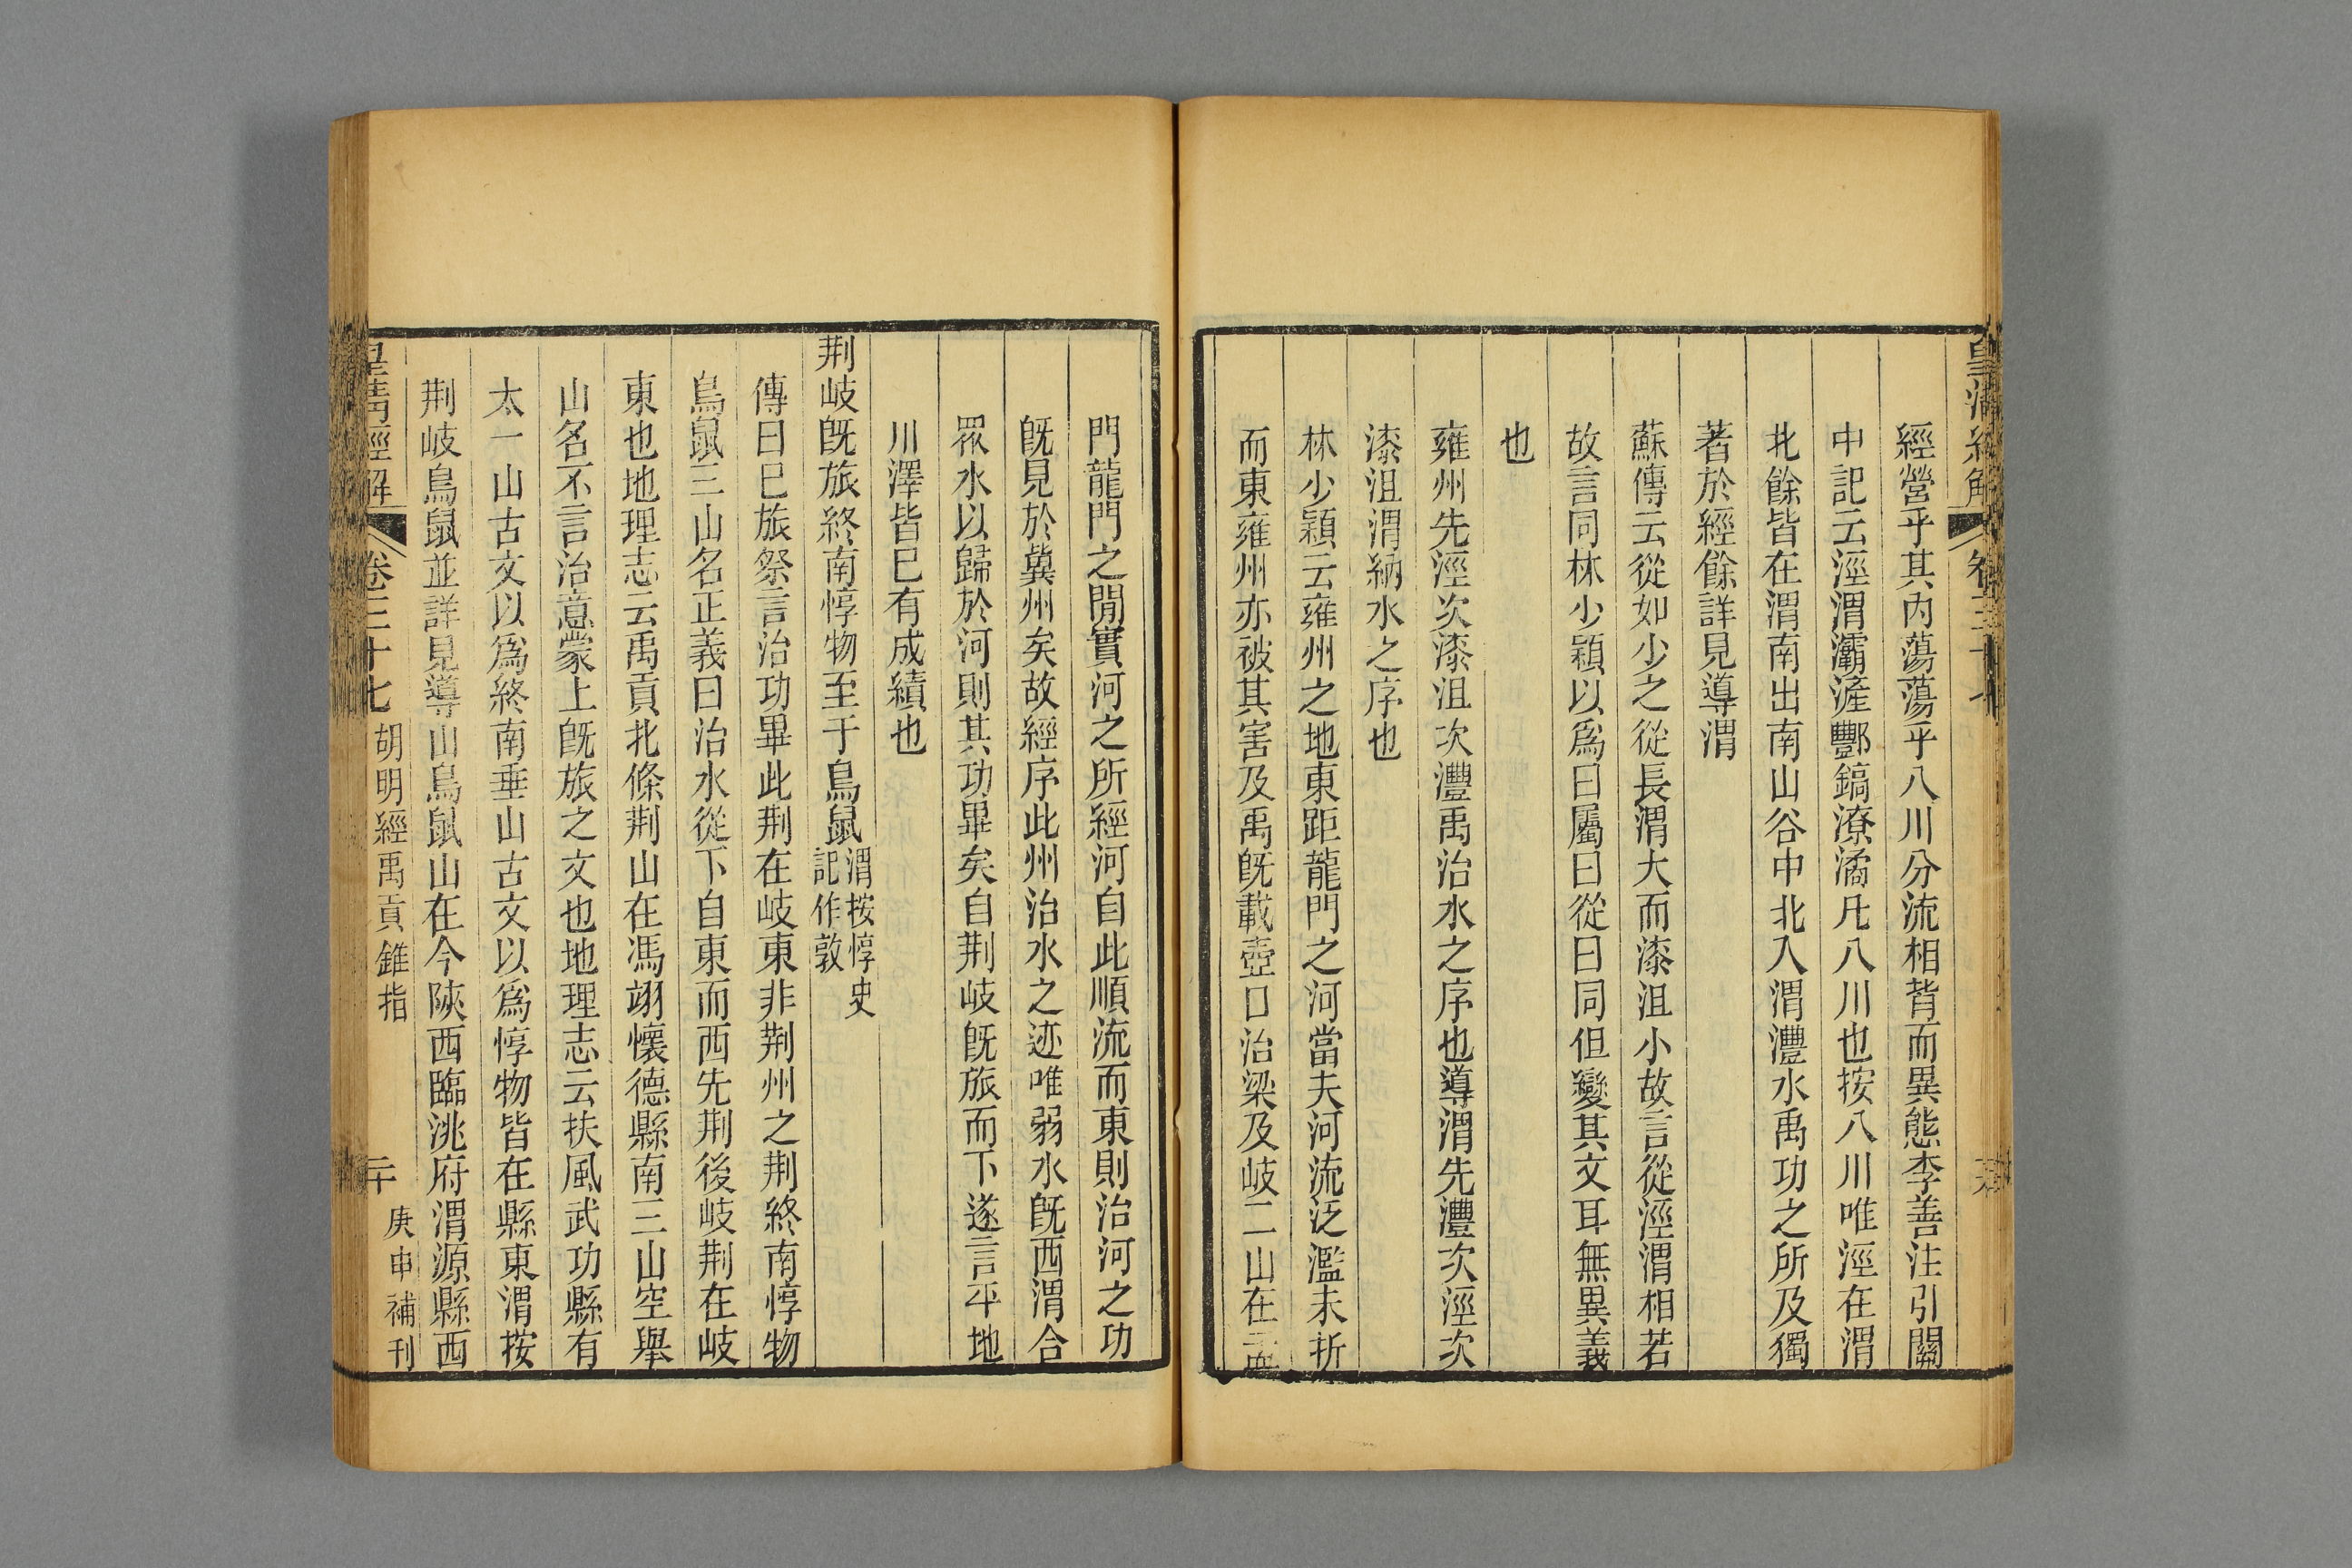 皇清經解
卷三十七
經營乎其内蕩蕩乎八川分流相背而異態李善注引關
中記云涇渭灞滻酆鎬潦潏凡八川也按八川唯涇在渭
北餘皆在渭南出南山谷中北入渭灃水禹功之所及獨
著於經餘詳見導渭
蘇傳云從如少之從長渭大而漆沮小故言從涇渭相若
故言同林少穎以爲曰屬曰從曰同但變其文耳無異義
也
雍州先涇次漆沮次灃禹治水之序也導渭先灃次涇次
漆沮渭納水之序也
林少穎云雍州之地東距龍門之河當夫河流泛濫未折
而東雍州亦被其害及禹旣載壺口治梁及岐二山在
門龍門之閒實河之所經河自此順流而東則治河之功
旣見於冀州矣故經序此州治水之迹唯弱水旣西渭合
眾水以歸於河則其功畢矣自荆岐旣旅而下遂言平地
川澤皆巳有成績也
荆岐旣旅終南惇物至于鳥鼠渭按惇史
記作敦
傳曰巳旅祭言治功畢此荆在岐東非荆州之荆終南惇物
鳥鼠三山名正義曰治水從下自東而西先荆後岐荆在岐
東也地理志云禹貢北條荆山在馮翊懷德縣南三山空舉
山名不言治意蒙上旣旅之文也地理志云扶風武功縣有
太一山古文以爲終南垂山古文以爲惇物皆在縣東渭按
荆岐鳥鼠並詳見導山鳥鼠山在今陝西臨洮府渭源縣西
皇清經解
卷三十七
胡明經禹貢錐指
二十
庚申補刊